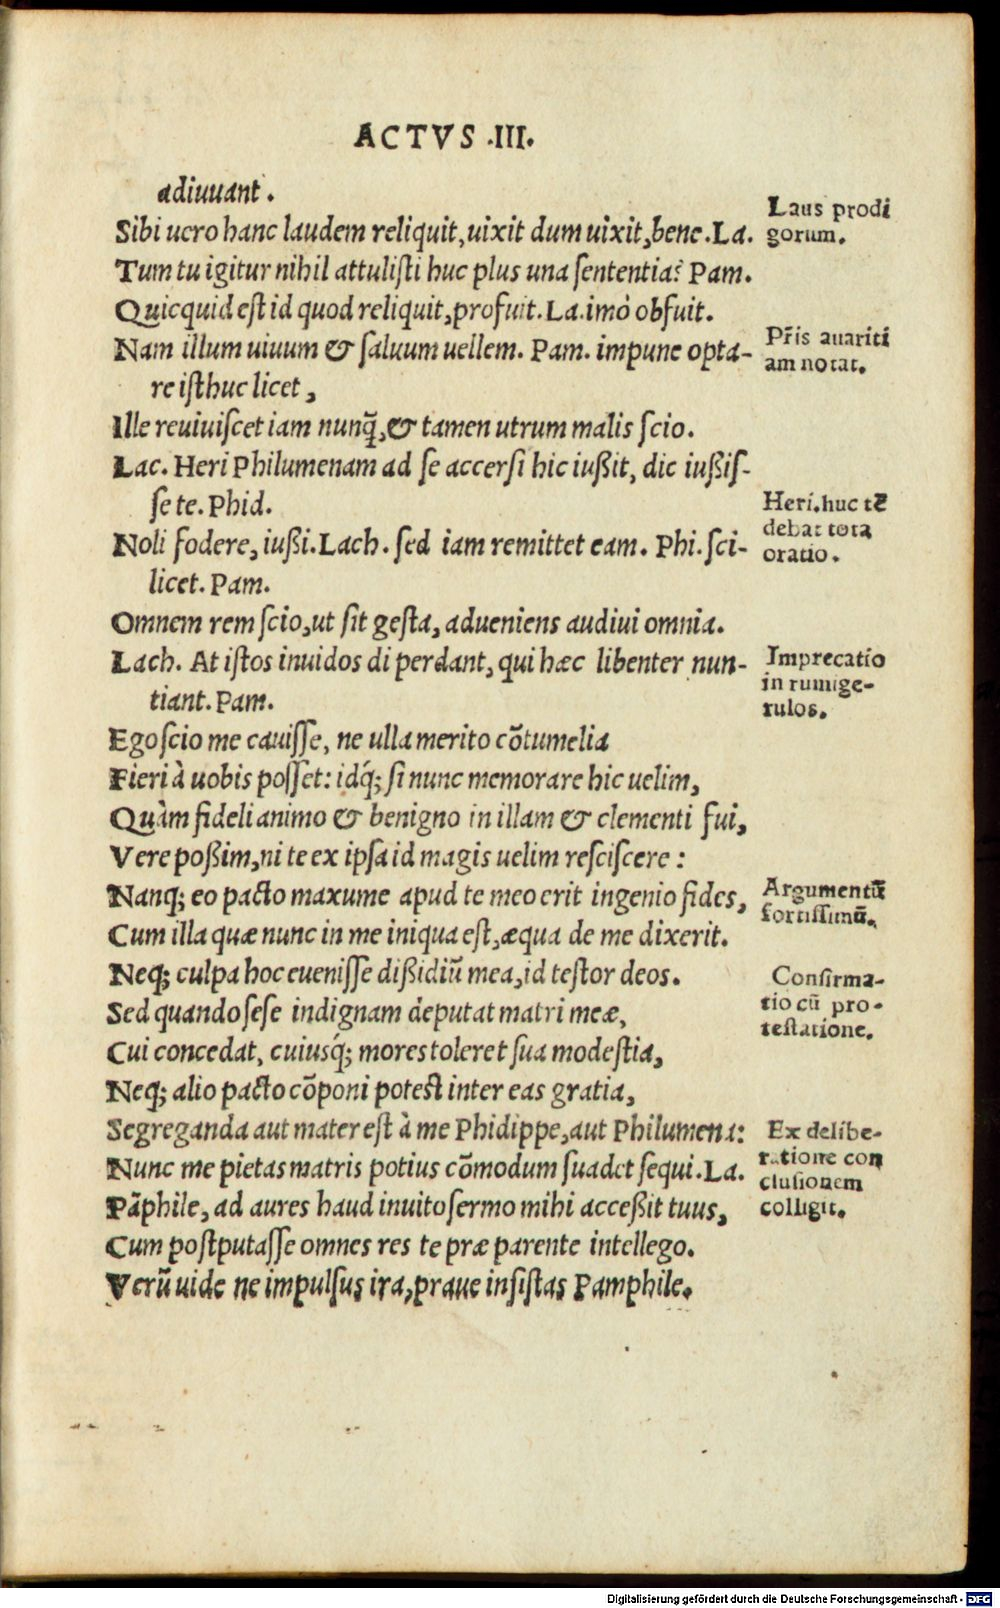 ACTVS .III.
adiuuant.
Sibi uero hanc laudem reliquit, uixit dum uixit, bene. La.
Tum tu igitur nihil attulisti huc plus una sententia? Pam.
Quicquid est id quod reliquit, profuit. La. imò obfuit.
Nam illum uiuum & saluum uellem. Pam. impune opta-
re isthuc licet,
Ille reuiuiscet iam nunq̃, & tamen utrum malis scio.
Lac. Heri Philumenam ad se accersi hic iußit, dic iußis-
se te. Phid.
Noli fodere, iußi. Lach. sed iam remittet eam. Phi. sci-
licet. Pam.
Omnem rem scio, ut sit gesta, adueniens audiui omnia.
Lach. At istos inuidos di perdant, qui hæc libenter nun-
tiant. Pam.
Ego scio me cauisse, ne ulla merito cõtumelia
Fieri à uobis posset: idq́; si nunc memorare hic uelim,
Quàm fideli animo & benigno in illam & clementi fui,
Vere poßim, ni te ex ipsa id magis uelim resciscere:
Nanq; eo pacto maxume apud te meo erit ingenio fides,
Cum illa quæ nunc in me iniqua est, æqua de me dixerit.
Neq; culpa hoc euenisse dißidiũ mea, id testor deos.
Sed quando sese indignam deputat matri meæ,
Cui concedat, cuiusq́; mores toleret sua modestia,
Neq; alio pacto cõponi potest inter eas gratia,
Segreganda aut mater est à me Phidippe, aut Philumena:
Nunc me pietas matris potius cõmodum suadet sequi. La.
Pãphile, ad aures haud inuito sermo mihi acceßit tuus,
Cum postputasse omnes res te præ parente intellego.
Verũ uide ne impulsus ira, praue insistas Pamphile.
Laus prodi
gorum.
Pr̃is auariti
am notat.
Heri. huc tẽ
debat tota
oratio.
Imprecatio
in rumige-
rulos.
Argumentũ
fortissimũ.
Confirma-
tio cũ pro-
testatione.
Ex delibe-
ratione con
clusionem
colligit.
Digitalisierung gefördert durch die Deutsche Forschungsgemeinschaft - DFG